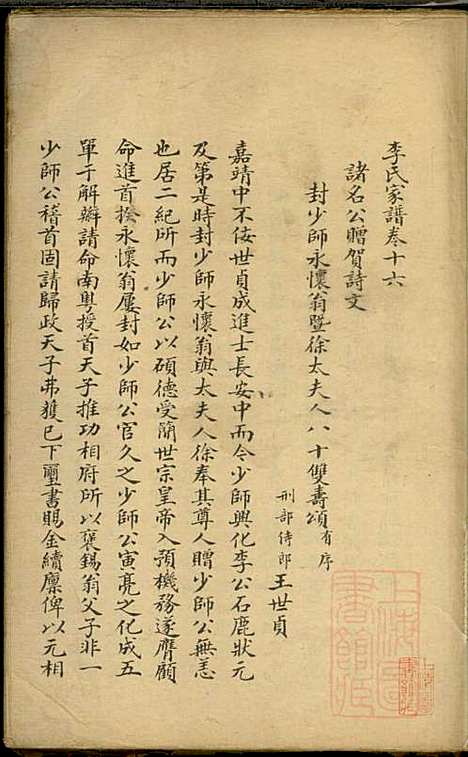 李氏家譜卷十六
諸名公贈賀詩文
封少師永懷翁暨徐太夫人八十雙壽頌有序
刑部侍郎王世貞
嘉靖中不佞世貞成進士長安中而今少師興化李公石鹿狀元
及第是時封少師永懷翁與太夫人徐奉其尊人贈少師公無恙
也居二紀所而少師公以碩德受簡世宗皇帝入預機務遂膺顧
命進首揆永懷翁屢封如少師公官久之少師公寅亮之化成五
單于解辮請命南粵授首天子推功相府所以褒錫翁父子非一
少師公稽首固請歸政天子弗獲已下璽書賜金續廩俾以元相
上海圖書館藏